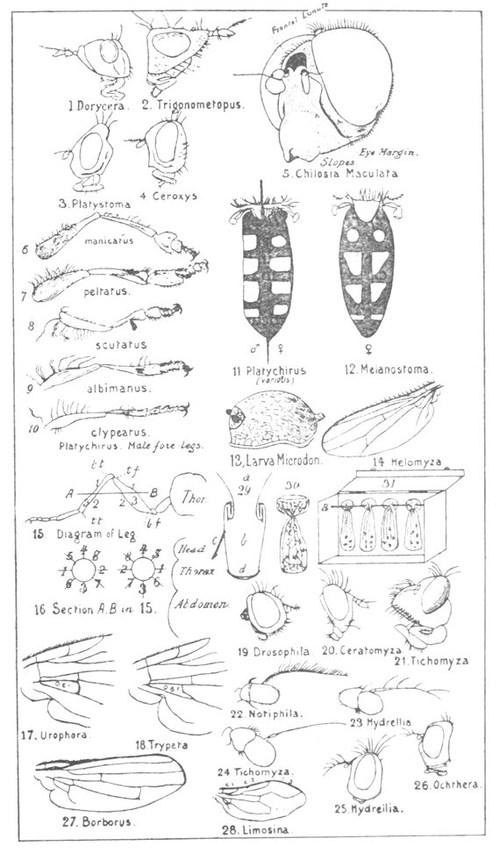 Frontal Lunule
1. Dorycera. 2. Trigonometopus.
Eye Margin.
Slopes
5. Chilosia Maculata
3. Platystoma
4 Ceroxys
6
manicatus
7
peltatus.
8
scutatus
9
albimanus.
10
clypeatus.
Platychirus. Male fore legs.
♂ ♀
11 Platychirus
(various)
♀
12. Melanostoma.
13, Larva Microdon.
14 Helomyza
bt tf
A 1 1 B
3 2 2 3
tt bf
15 Diagram of Leg
Thor.
16 Section A.B in 15.
Head
Thorax
Abdomen
a
29
b
c
d
30
31
a
19 Drosophila.
20. Ceratomyza
21. Tichomyza
17. Urophora.
18 Trypeta
22. Notiphila.
23 Hydrellia
24 Tichomyza.
25. Hydrellia.
26. Ochthera.
27. Borborus.
28. Limosina